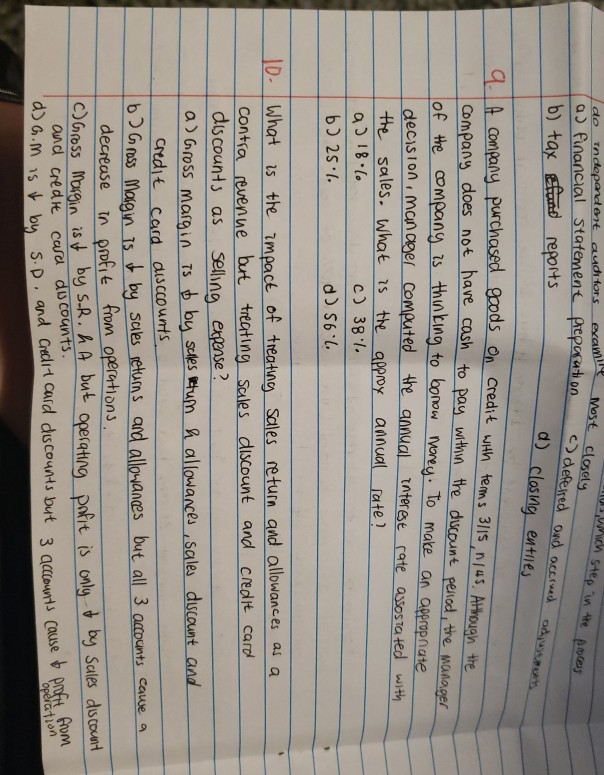 do independent auditors examine most closely
which step in the process
a) financial statement preparation c) deferred and accrued
b) tax reports d) closing entries
9. A company purchased goods on credit with terms 3/15, n/45. Although the
company does not have cash to pay within the discount period, the manager
of the company is thinking to borrow money. To make an appropriate
decision, manager computed the annual interest rate assosiated with
the sales. What is the approx annual rate?
a) 18% c) 38%
b) 25% d) 56%
10. What is the impact of treating sales return and allowances as a
contra revenue but treating sales discount and credit card
discounts as selling expense?
a) Gross margin is ↓ by sales return & allowances, sales discount and
credit card discounts.
b) Gross Margin is ↓ by sales returns and allowances but all 3 accounts cause a
decrease in profit from operations.
c) Gross Margin is ↓ by S.R. & A but operating profit is only ↓ by sales discount
and credit card discounts.
d) G.M is ↓ by S.D. and credit card discounts but 3 acccounts cause ↓ profit from
operation